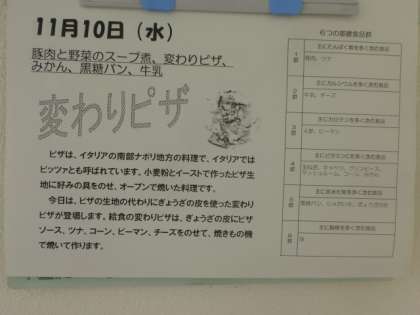 11月10日（水）
豚肉と野菜のスープ煮、変わりピザ、
みかん、黒糖パン、牛乳
変わりピザ
ピザは、イタリアの南部ナポリ地方の料理で、イタリアでは
ピッツァとも呼ばれています。小麦粉とイーストで作ったピザ生
地に好みの具をのせ、オーブンで焼いた料理です。
今日は、ピザの生地の代わりにぎょうざの皮を使った変わり
ピザが登場します。給食の変わりピザは、ぎょうざの皮にピザ
ソース、ツナ、コーン、ピーマン、チーズをのせて、焼きもの機
で焼いて作ります。
6つの基礎食品群
主にたんぱく質を多く含む食品
1群
豚肉、ツナ
主にカルシウムを多く含む食品
2群
牛乳、チーズ
主にカロテンを多く含む食品
3群
人参、ピーマン
主にビタミンCを多く含む食品
4群
主に炭水化物を多く含む食品
5群
黒糖パン、じゃがいも、ぎょうざの皮
主に脂肪を多く含む食品
6群
油